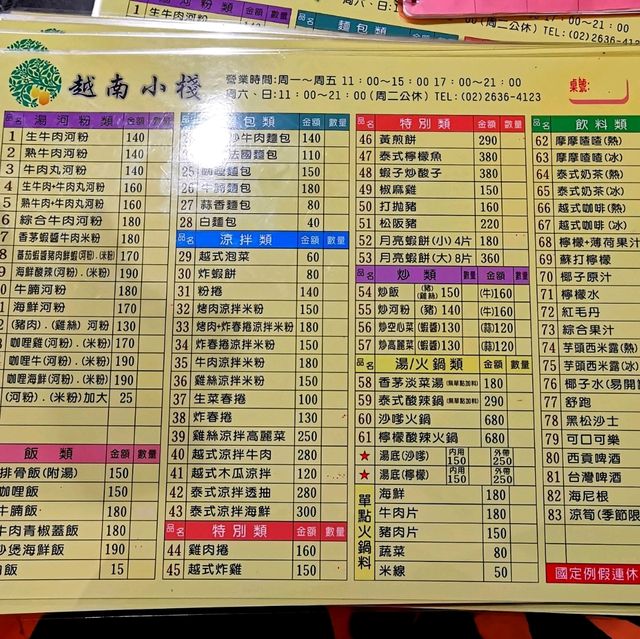 越南小棧
營業時間:周一～周五 11：00～15：00 17：00～21：00
周六、日:11：00～21：00(周二公休) TEL:(02)2636-4123
桌號:
湯河粉類 金額 數量
1 生牛肉河粉 140
2 熟牛肉河粉 140
3 牛肉丸河粉 140
4 生牛肉+牛肉丸河粉 160
5 熟牛肉+牛肉丸河粉 160
6 綜合牛肉河粉 180
7 香茅蝦醬牛肉米粉 180
8 蕃茄蝦醬豬肉鮮蝦(河粉).(米粉) 190
9 海鮮酸辣(河粉).(米粉) 190
牛腩河粉 180
海鮮河粉 170
(豬肉).(雞絲) 河粉 130
咖哩雞(河粉).(米粉) 190
咖哩牛(河粉).(米粉) 190
咖哩海鮮(河粉).(米粉) 190
(河粉).(米粉)加大 25
飯類 金額 數量
排骨飯(附湯) 150
咖哩飯 150
牛腩飯 180
牛肉青椒蓋飯 180
煲海鮮飯 190
飯 15
包類 金額 數量
牛肉麵包 140
法國麵包 110
25 咖哩麵包 180
26 牛腩麵包 180
27 蒜香麵包 80
28 白麵包 40
品名 涼拌類 金額 數量
29 越式泡菜 60
30 炸蝦餅 80
31 粉捲 140
32 烤肉涼拌米粉 150
33 烤肉+炸春捲涼拌米粉 180
34 炸春捲涼拌米粉 150
35 牛肉涼拌米粉 180
36 雞絲涼拌米粉 150
37 生菜春捲 100
38 炸春捲 130
39 雞絲涼拌高麗菜 250
40 越式涼拌牛肉 280
41 越式木瓜涼拌 120
42 泰式涼拌透抽 280
43 泰式涼拌海鮮 300
品名 特別類 金額 數量
44 雞肉捲 160
45 越式炸雞 150
品名 特別類 金額 數量
46 黃煎餅 290
47 泰式檸檬魚 380
48 蝦子炒酸子 380
49 椒麻雞 150
50 打拋豬 160
51 松阪豬 220
52 月亮蝦餅(小) 4片 180
53 月亮蝦餅(大) 8片 360
品名 炒類 金額 數量
54 炒飯 (豬)(雞絲) 150 (牛)160
55 炒河粉 (豬) 140 (牛)160
56 炒空心菜 (蝦醬)130 (蒜)120
57 炒高麗菜 (蝦醬)130 (蒜)120
品名 湯/火鍋類 金額 數量
58 香茅淡菜湯 (無單點加料) 180
59 泰式酸辣湯 (無單點加料) 290
60 沙嗲火鍋 680
61 檸檬酸辣火鍋 680
★ 湯底(沙嗲) 內用 150 外帶 250
★ 湯底(檸檬) 內用 150 外帶 250
單點火鍋料
海鮮 180
牛肉片 180
豬肉片 150
蔬菜 80
米線 50
品名 飲料類
62 摩摩喳喳(熱)
63 摩摩喳喳(冰)
64 泰式奶茶(熱)
65 泰式奶茶(冰)
66 越式咖啡(熱)
67 越式咖啡(冰)
68 檸檬+薄荷果汁
69 蘇打檸檬
70 椰子原汁
71 檸檬水
72 紅毛丹
73 綜合果汁
74 芋頭西米露(熱)
75 芋頭西米露(冰)
76 椰子水(易開
77 舒跑
78 黑松沙士
79 可口可樂
80 西貢啤酒
81 台灣啤酒
82 海尼根
83 涼筍(季節限
國定例假連休